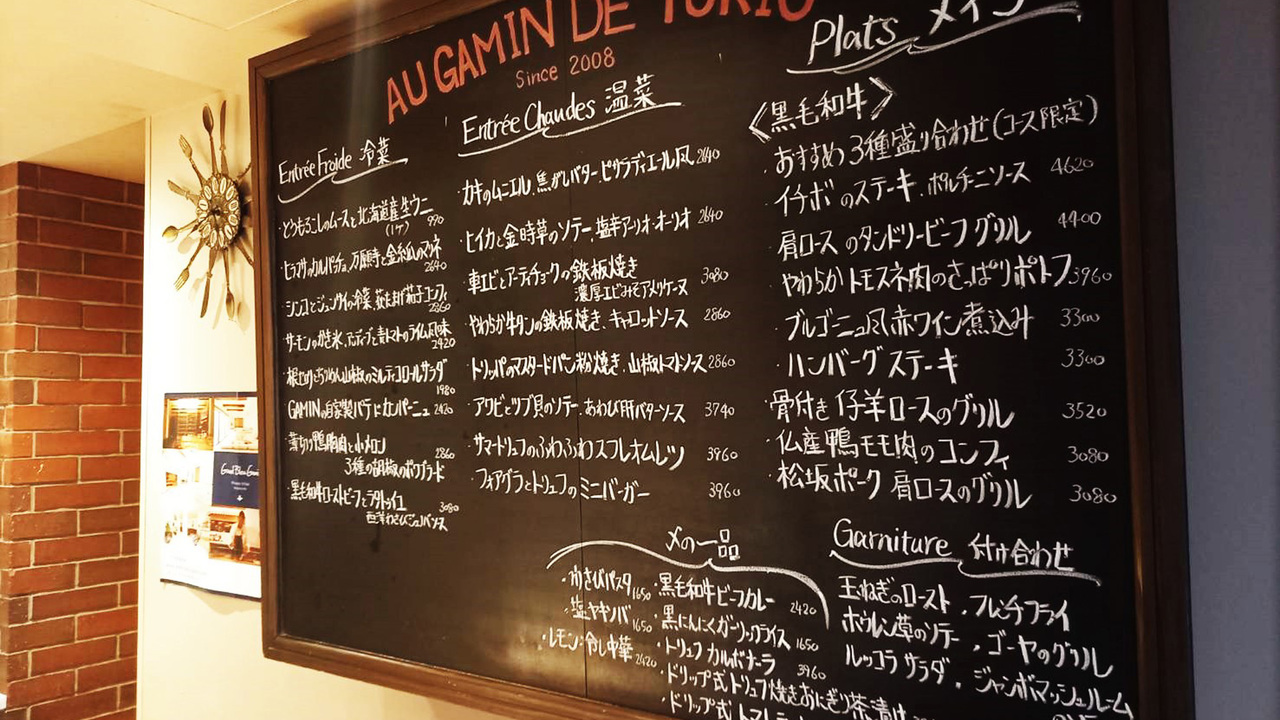 AU GAMIN DE TOKIO
Since 2008
Entrée Froide 冷菜
・とうもろこしのムースと北海道産生ウニ
(1ケ) 990
・ヒラマサのカルパッチョ、万願寺と金糸瓜のマリネ
2640
サーモンのかき氷、エンディーブと青トマトのライム風味
2420
1980
GAMINの自家製パテ ド カンパーニュ 2420
2860
3種の胡椒のポワヴラード
・黒毛和牛ローストビーフとラタトゥイユ
3080
Entrée Chaudes 温菜
・カキのムニエル、焦がしバター、ピサラディエール風 2640
・ヒイカと金時草のソテー、塩辛アーリオ・オーリオ 2640
・車エビとアーティチョークの鉄板焼き 3080
濃厚エビみそアメリケーヌ
・やわらか牛タンの鉄板焼き、キャロットソース 2860
・トリッパのマスタードパン粉焼き、山椒トマトソース 2860
・アワビとツブ貝のソテー、あわび肝バターソース 3740
・サマートリュフのふわふわスフレオムレツ 3960
・フォアグラとトリュフのミニバーガー 3960
Plats メイン
《黒毛和牛》
・おすすめ3種盛り合わせ(コース限定)
・イチボのステーキ、ポルチーニソース 4620
・肩ロースのタンドリービーフグリル 4400
・やわらかトモスネ肉のさっぱりポトフ 3960
・ブルゴーニュ風赤ワイン煮込み 3300
・ハンバーグステーキ 3300
・骨付き仔羊ロースのグリル 3520
・仏産鴨モモ肉のコンフィ 3080
・松坂ポーク肩ロースのグリル 3080
〆の一品
・わさびパスタ 1650
・塩ヤキソバ 1650
・レモン冷し中華 2420
・黒毛和牛ビーフカレー 2420
・黒にんにくガーリックライス 1650
・トリュフカルボナーラ 3960
・ドリップ式トリュフ焼きおにぎり茶漬け
・ドリップ式
Garniture 付け合わせ
玉ねぎのロースト、フレンチフライ
ホウレン草のソテー、ゴーヤのグリル
ルッコラサラダ、ジャンボマッシュルーム